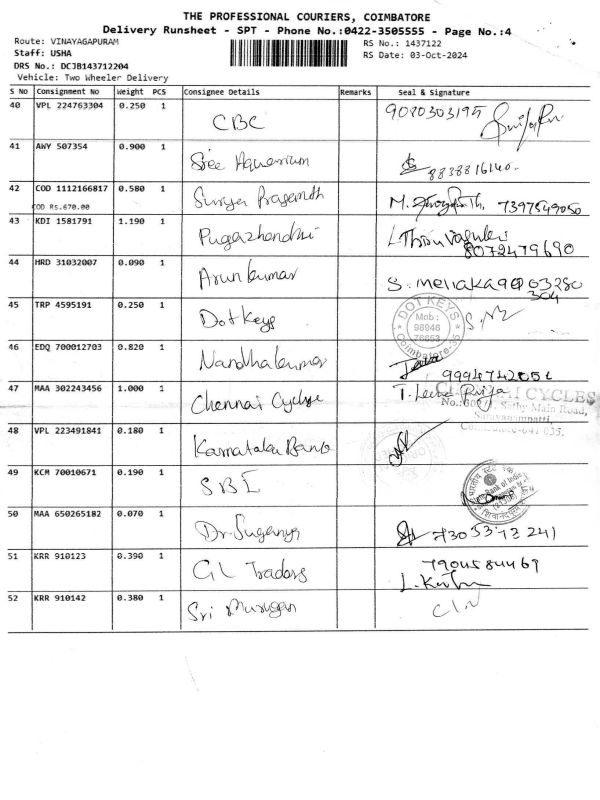 THE PROFESSIONAL COURIERS, COIMBATORE
Delivery Runsheet - SPT - Phone No.:0422-3505555 - Page No.:4
Route: VINAYAGAPURAM
RS No.: 1437122
Staff: USHA
RS Date: 03-Oct-2024
DRS No.: DCJB143712204
Vehicle: Two Wheeler Delivery
S No Consignment No Weight PCS Consignee Details Remarks Seal & Signature
40 VPL 224763304 0.250 1 CBC
41 AWY 507354 0.900 1 Sree Aquarium 8838816140.
42 COD 1112166817 0.580 1 Surya Prasanth M. 7397549050
COD Rs.670.00
43 KDI 1581791 1.190 1 Pugazhendhi
8072479690
44 HRD 31032007 0.090 1 Arunkumar
304
45 TRP 4595191 0.250 1 Dotkeys
DOT KEYS
Mob:
98946
Coimbatore-35
46 EDQ 700012703 0.820 1 Nandhakumar
47 MAA 302243456 1.000 1 Chennai Cycle T. Leena
CYCLES
Sathy Main Road,
Saravanampatti,
641 035.
48 VPL 223491841 0.180 1 Karnataka Bank
49 KCM 70010671 0.190 1 SBI
50 MAA 650265182 0.070 1 Dr. Suganya
51 KRR 910123 0.390 1 GL Traders 7904584469
52 KRR 910142 0.380 1 Sri Murugan